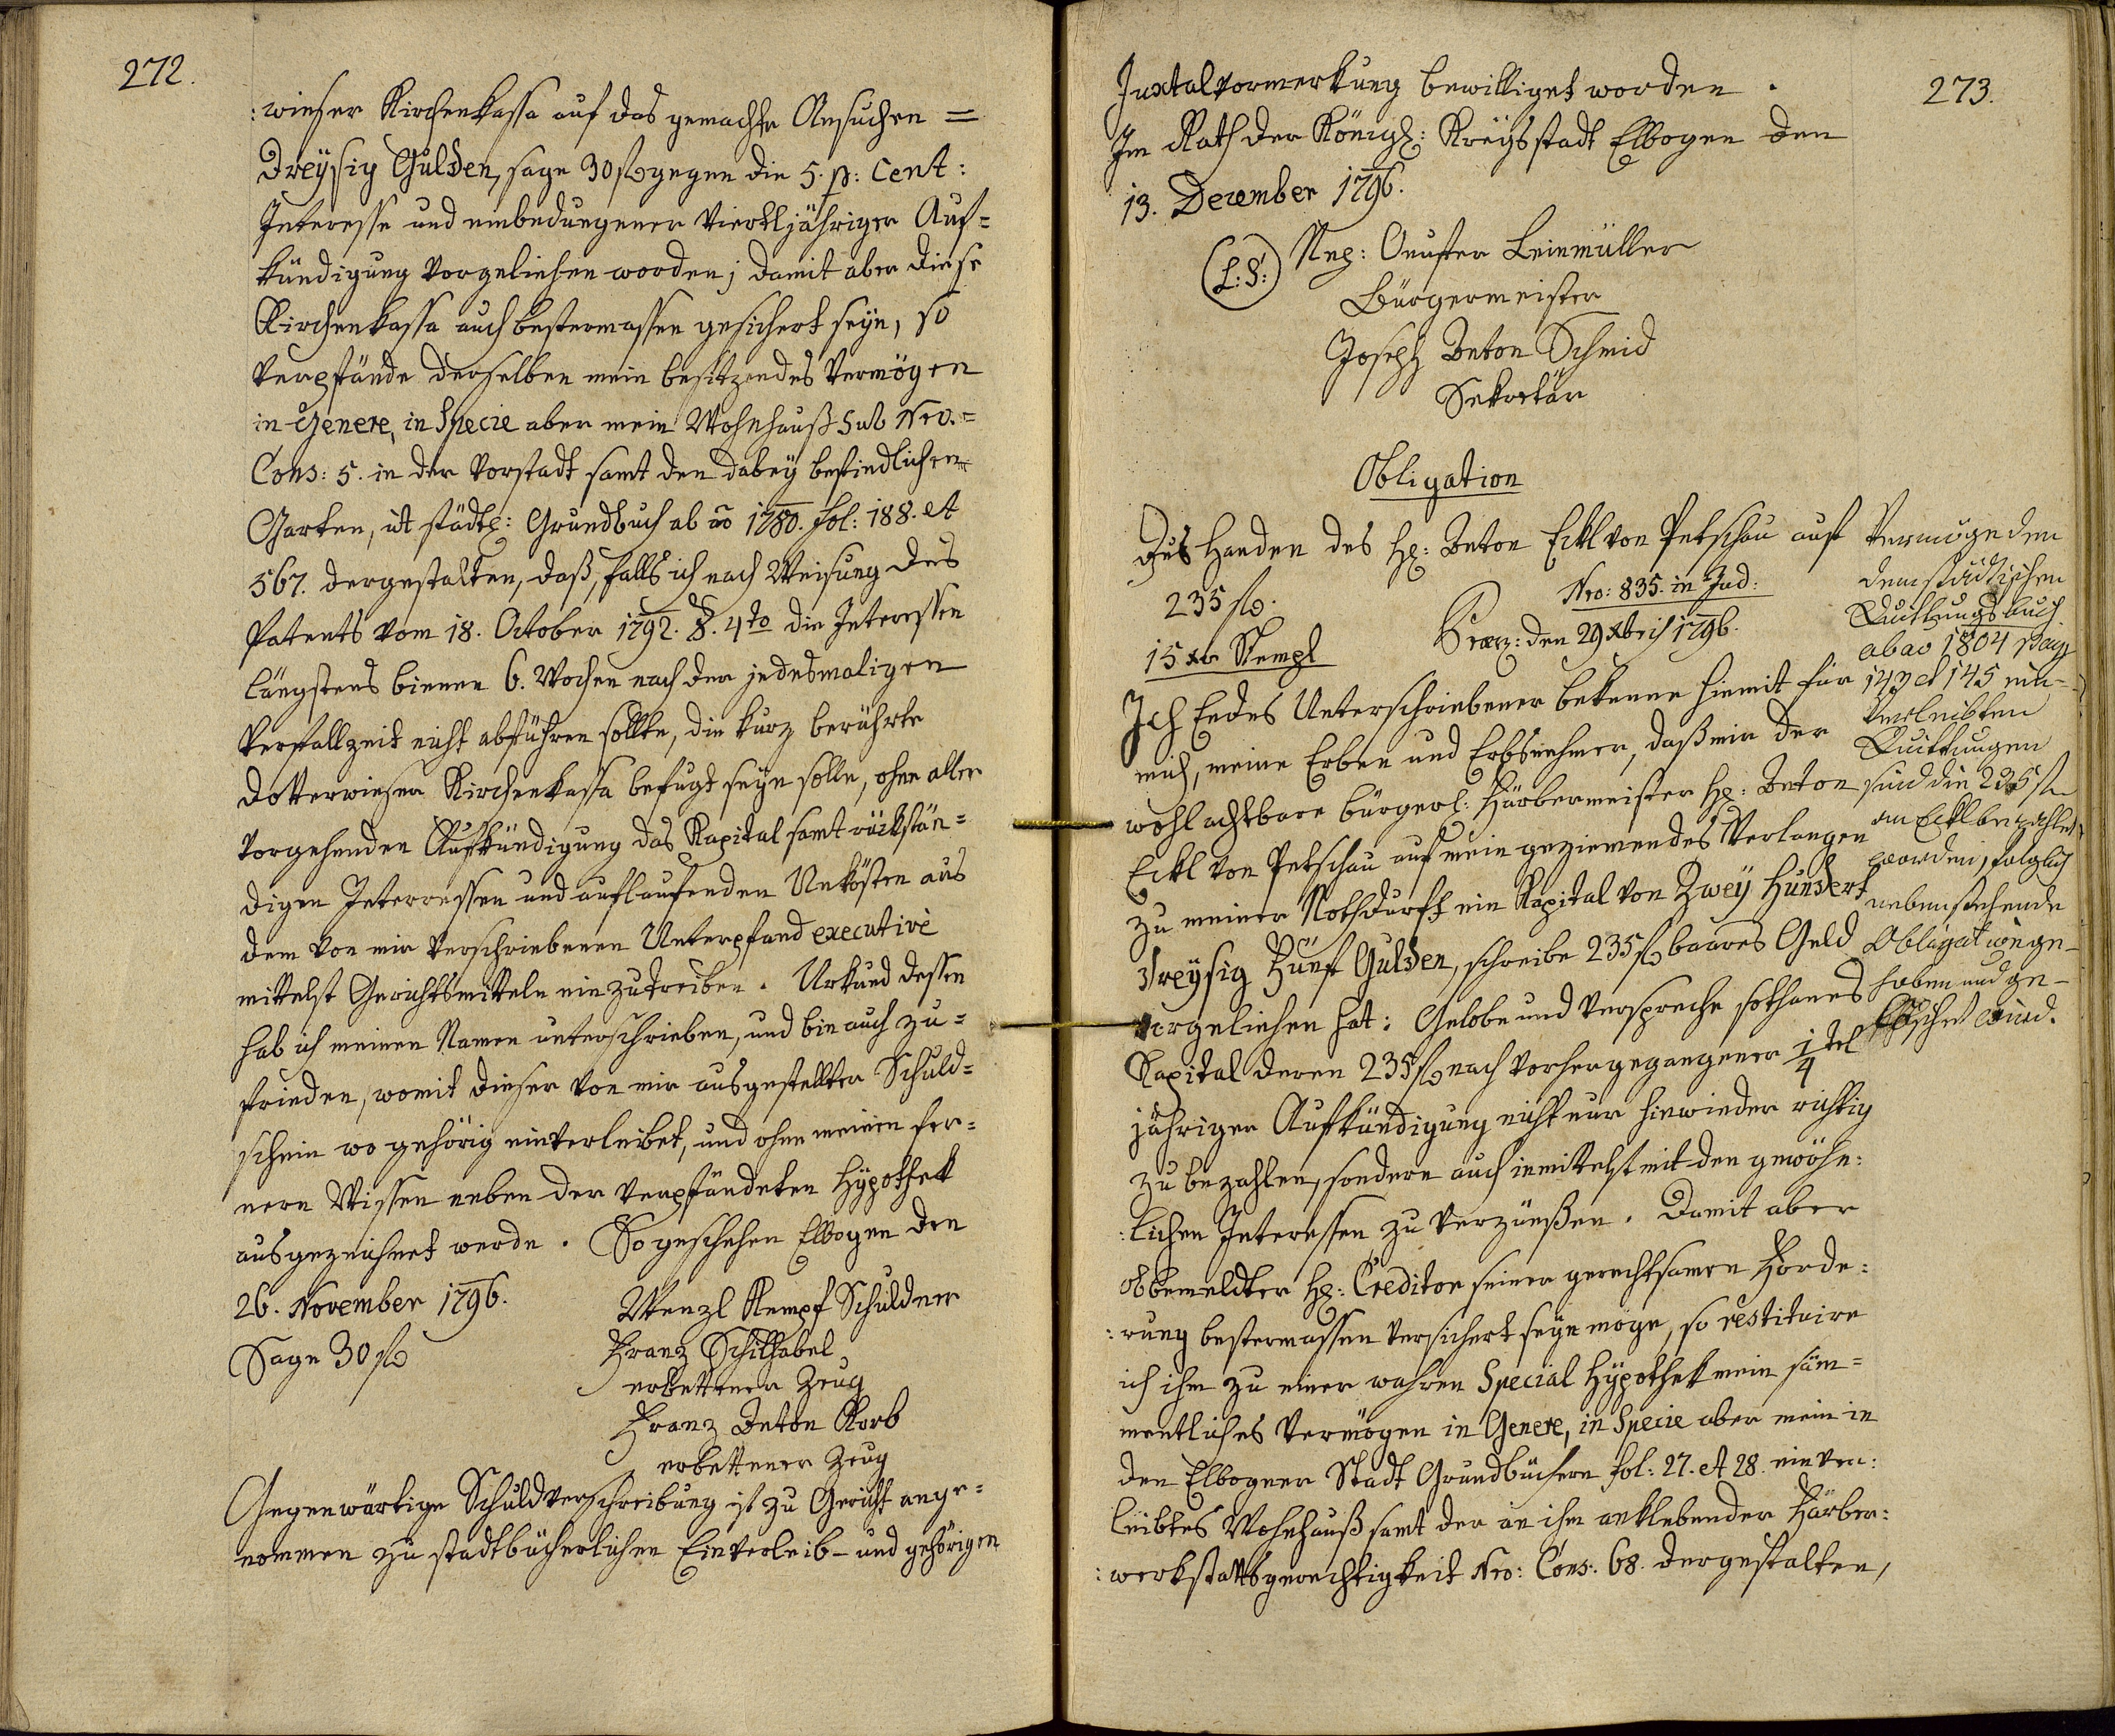 272.
: wieser Kirchenkassa auf das gemachte Ansuchen =
Dreÿsig Gulden, sage 30 fl gegen die 5. p: Cent:
Interesse und einbedungener viertljähriger Auf=
kündigung vorgeliehen worden; damit aber diese
Kirchenkassa auch bestermassen gesichert seÿn, so
verpfände derselben mein besitzendes Vermögen
in Genere, in Specie aber mein Wohnhauß Sub Nro.=
Cons: 5. in der Vorstadt samt den dabeÿ befindlichen
Garten, ut städtl: Grundbuch ab ao 1780. fol: 188. et
567. dergestalten, daß, falls ich nach Weisung des
Patents vom 18. October 1792. §. 4to die Interessen
längstens binnen 6. Wochen nach der jedesmaligen
Verfallzeit nicht abführen sollte, die kurz berührte
Dotterwieser Kirchenkassa befugt seÿn solle, ohne aller
vorgehenden Aufkündigung das Kapital samt rückstän=
digen Interressen und auflaufenden Unkösten aus
dem von mir verschriebenen Unterpfand executivè
mittelst Gerichtsmitteln einzutreiben. Urkund dessen
hab ich meinen Namen unterschrieben, und bin auch zu=
frieden, womit dieser von mir ausgestellter Schuld=
schein wo gehörig einverleibet, und ohne meinen fer=
nern Wissen neben der verpfändeten Hÿpothek
ausgezeichnet werde. So geschehen Elbogen den
26. November 1796.
Wenzl Kempf Schuldner
Sage 30 fl
Franz Schilhabel
erbettener Zeug
Franz Anton Korb
erbettener Zeug
Gegenwärtige Schuldverschreibung ist zu Gericht ange=
nommen zu stadtbücherlichen Einverleib- und gehörigen
273.
Juxtalvormerkung bewilliget worden.
Im Rath der Königl: Kreÿsstadt Elbogen den
13. December 1796.
(L:S:)
Nep: Leinmüller
Bürgermeister
Joseph Anton Schmid
Sekretär
Obligation
Zus Handen des H: Anton Eckl von Petschau auf
235 fl.
Nro: 835. in Jud:
15 xr Stempl
Præs: den 29 Xbris 1796.
Ich Endes Unterschriebener bekenne hiemit für
mich, meine Erben und Erbsnehmer, daß mir der
wohlachtbare bürgerl: Färbermeister H: Anton
Eckl von Petschau auf mein geziemendes Verlangen
zu meiner Nothdurft ein Kapital von Zweÿ Hundert
dreÿsig Fünf Gulden, schreibe 235 fl baares Geld
vorgeliehen hat: Gelobe und verspreche sothanes
Kapital deren 235 fl nach vorhergegangener 1/4 tel
jähriger Aufkündigung nicht nur hinwieder richtig
zu bezahlen, sondern auch inmittelst mit den gewöhn:
:lichen Interessen zu verzünßen. Damit aber
obbemeldter H: Creditor seiner gerechtsamen Forde:
:rung bestermassen versichert seÿn möge, so restituire
ich ihm zu einer wahren Special Hÿpothek mein säm=
mentliches Vermögen in Genere, in Specie aber mein in
den Elbogner Stadt Grundbüchern fol: 27. et 28. einver:
leibtes Wohnhauß samt der an ihm anklebender Färber:
:werkstattsgerechtigkeit Nro: Cons: 68. dergestalten,
Vermög den
dem städtischen
Quittungsbuch
ab ao 1804 pag
147 et 145 ein-
verleibten
Quittungen
sind die 235 fl
an Eckl bezahlet
worden, folglich
nebenstehende
Obligat wege-
hoben und ge-
löschet wird.